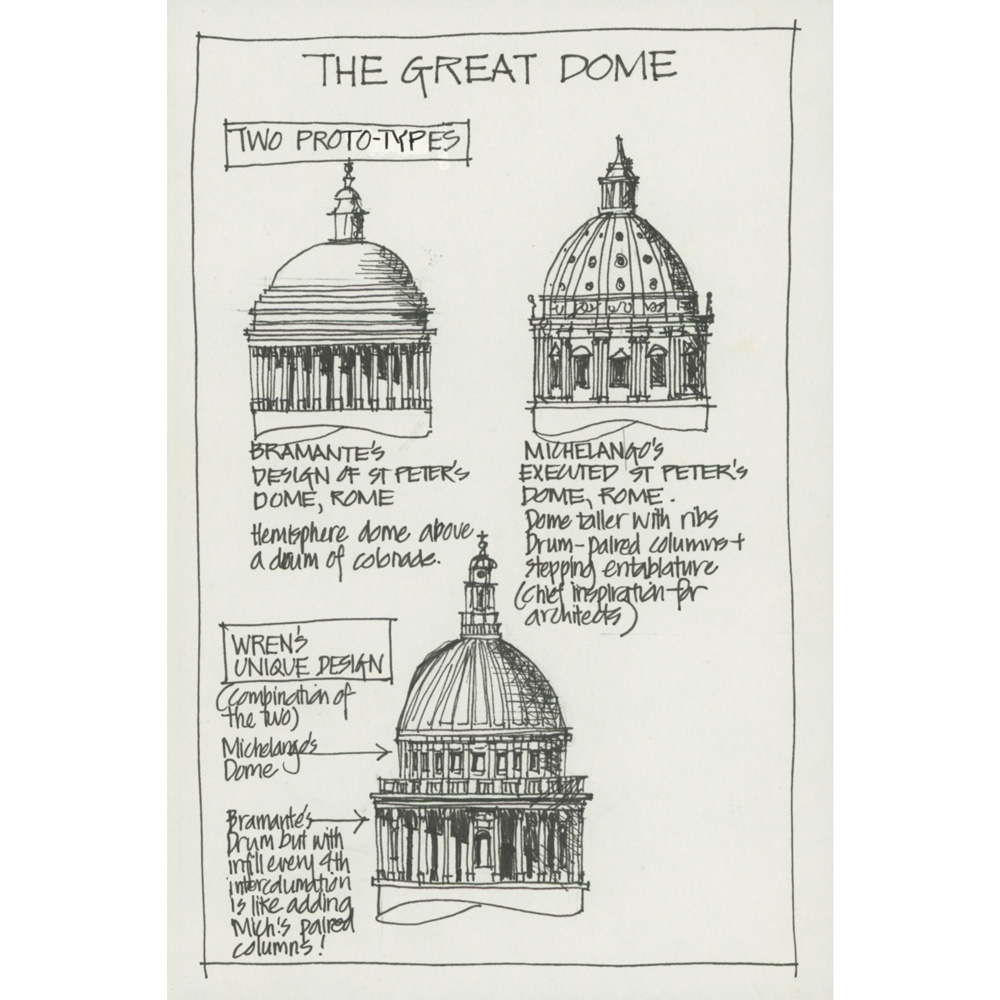 THE GREAT DOME
TWO PROTO-TYPES
BRAMANTE'S
DESIGN OF ST PETER'S
DOME, ROME
Hemisphere dome above
a drum of colonade.
MICHELANGO'S
EXECUTED ST PETER'S
DOME, ROME.
Dome taller with ribs
Drum-paired columns +
stepping entablature
(chief inspiration for
architects)
WREN'S
UNIQUE DESIGN
(combination of
the two)
Michelango's
Dome
Bramante's
Drum but with
infill every 4th
intercolumnation
is like adding
Mich's paired
columns!